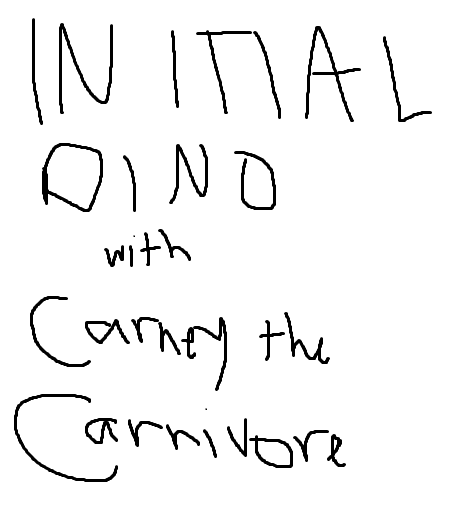 INITIAL
DINO
with
Carney the
Carnivore